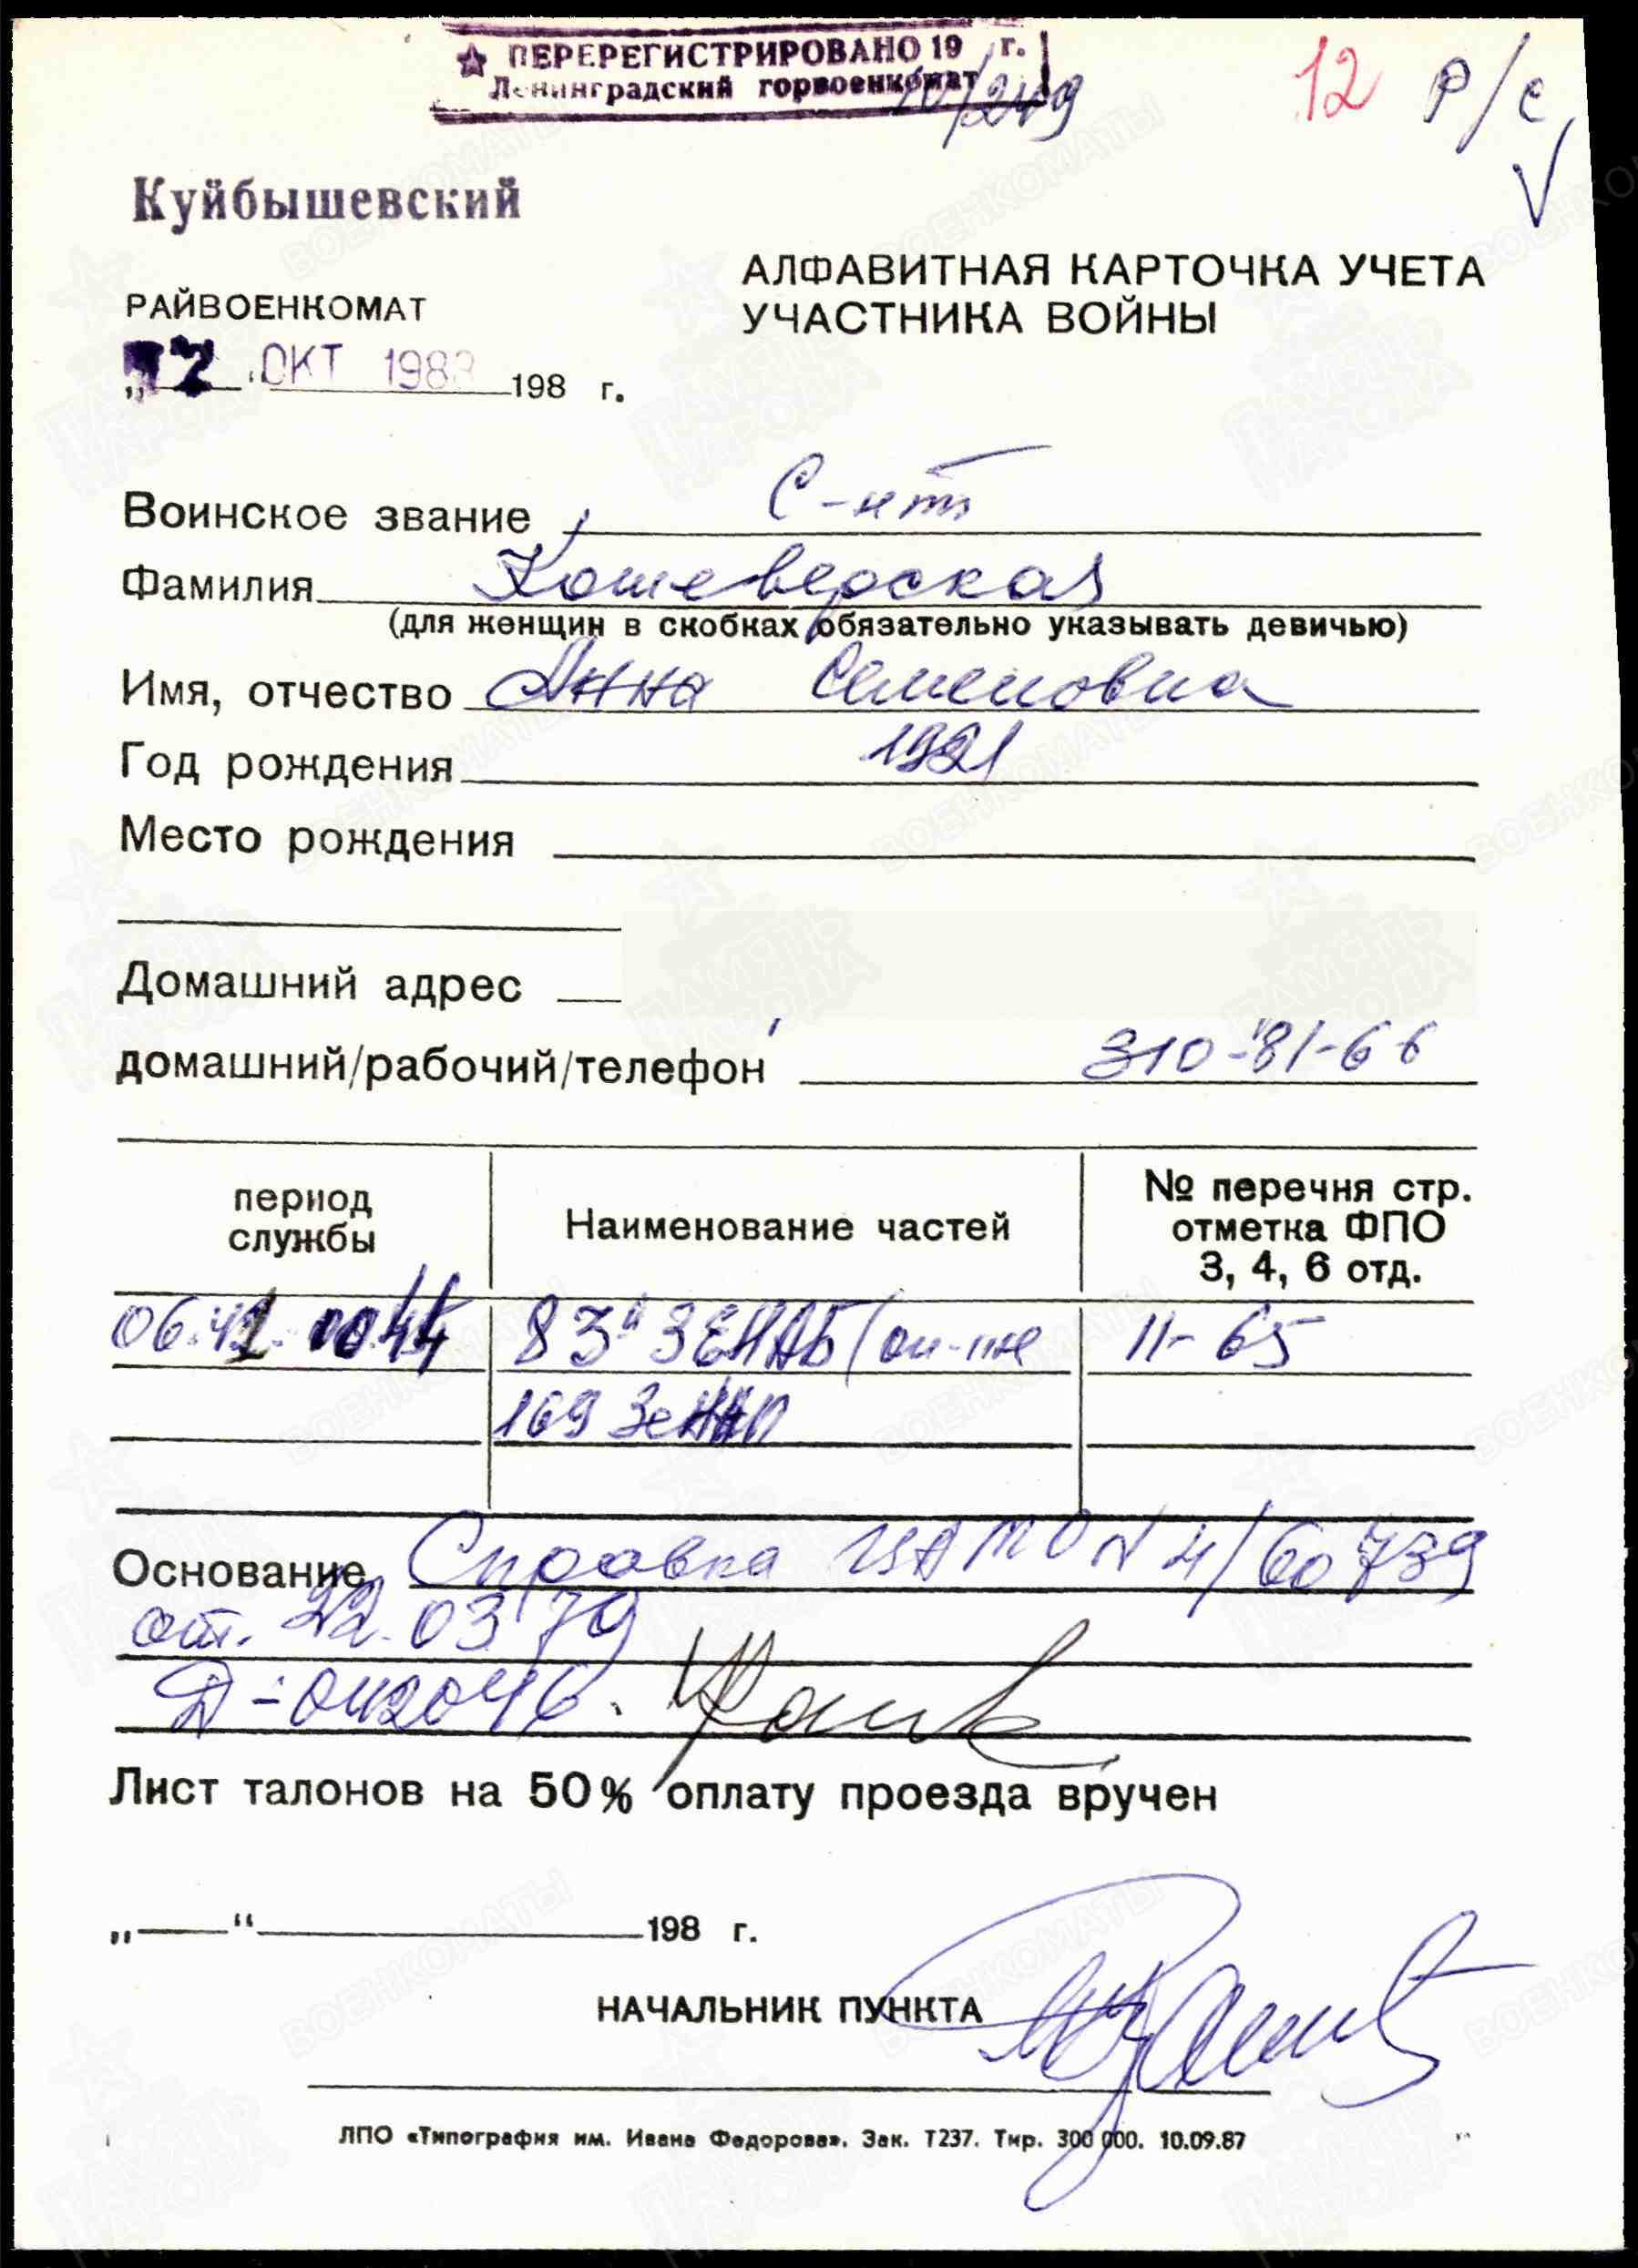 ПЕРЕРЕГИСТРИРОВАНО 19 г.
Ленинградский горвоенкомат
12 Р/с
Куйбышевский
АЛФАВИТНАЯ КАРТОЧКА УЧЕТА
УЧАСТНИКА ВОЙНЫ
РАЙВОЕНКОМАТ
ОКТ 198 198 г.
Воинское звание С-нт
Фамилия Кошеверская
(для женщин в скобках обязательно указывать девичью)
Имя, отчество Анна Семеновна
Год рождения 1921
Место рождения
Домашний адрес
домашний/рабочий/телефон 310-81-66
период службы
Наименование частей
№ перечня стр. отметка ФПО 3, 4, 6 отд.
83 ЗЕНАБ 11-65
169 ЗенАП
Основание Справка ЦАМО N 4/60739
от. 22.03.79
Д-042046.
Лист талонов на 50% оплату проезда вручен
„ “ 198 г.
НАЧАЛЬНИК ПУНКТА
ЛПО «Типография им. Ивана Федорова». Зак. Т237. Тир. 300 000. 10.09.87